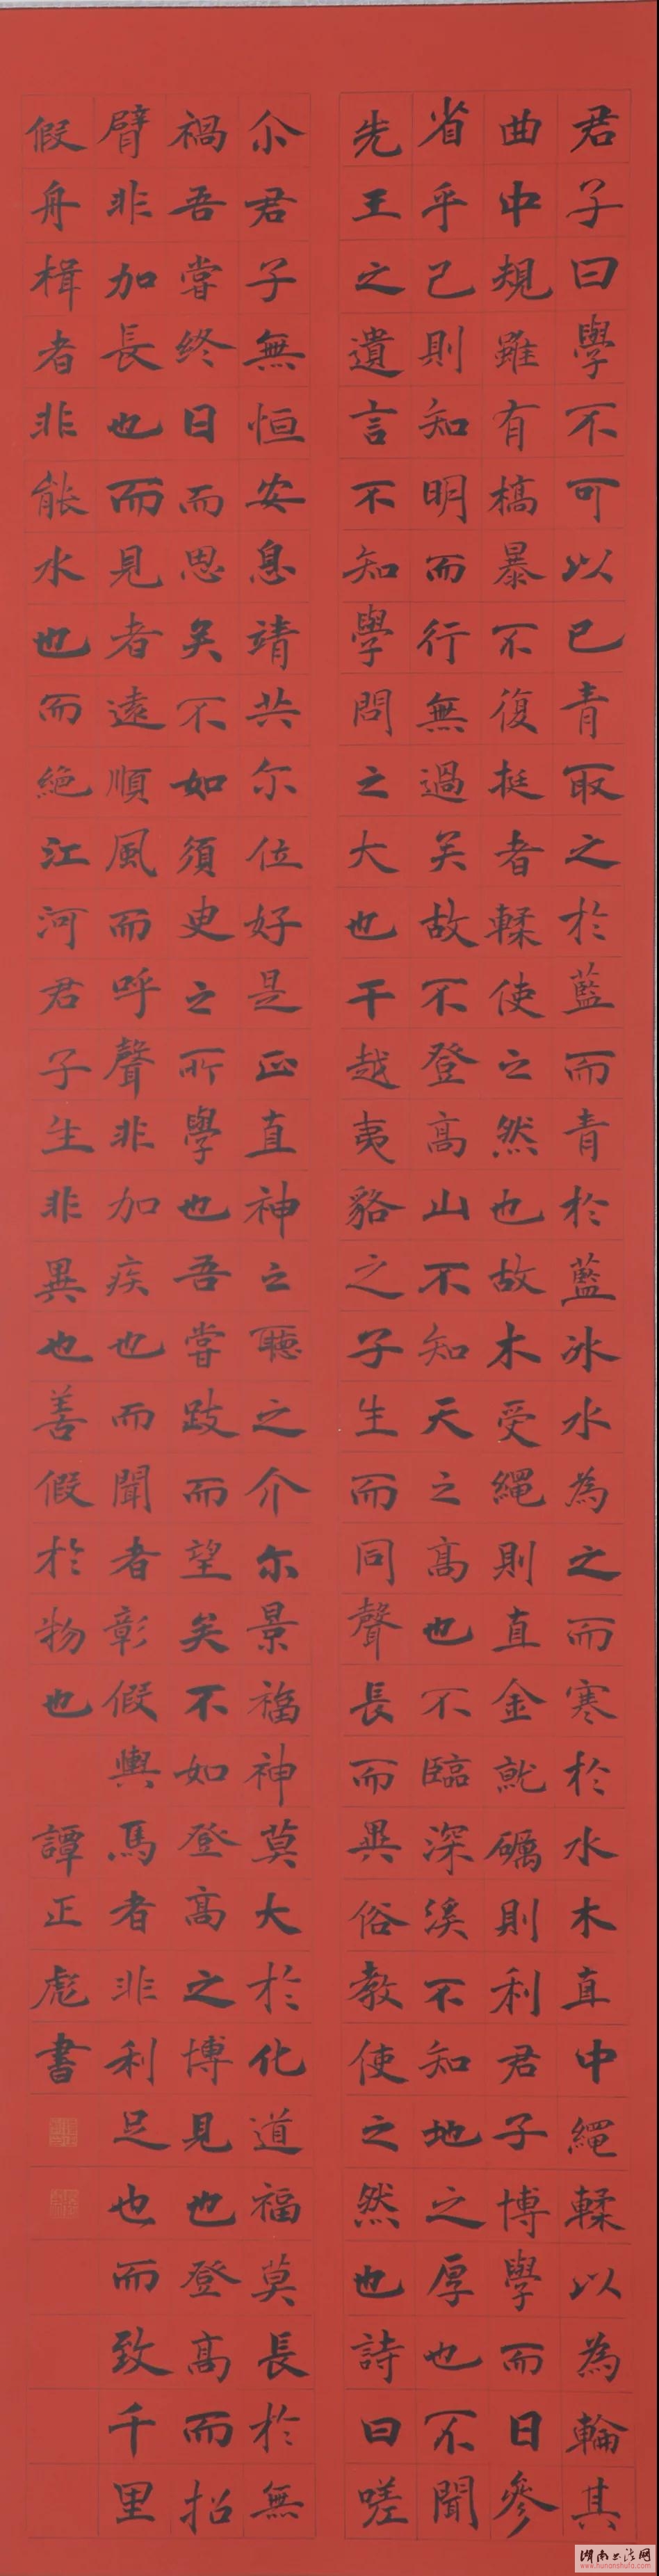 君子曰學不可以已青取之於藍而青於藍冰水為之而寒於水木直中繩輮以為輪其
曲中規雖有槁暴不復挺者輮使之然也故木受繩則直金就礪則利君子博學而日參
省乎己則知明而行無過矣故不登高山不知天之高也不臨深溪不知地之厚也不聞
先王之遺言不知學問之大也干越夷貉之子生而同聲長而異俗教使之然也詩曰嗟
尒君子無恒安息靖共尔位好是正直神之聽之介尔景福神莫大於化道福莫長於無
禍吾嘗終日而思矣不如須臾之所學也吾嘗跂而望矣不如登高之博見也登高而招
臂非加長也而見者遠順風而呼聲非加疾也而聞者彰假輿馬者非利足也而致千里
假舟楫者非能水也而絕江河君子生非異也善假於物也 譚正彪書
湖南书法网
www.hunanshufa.com